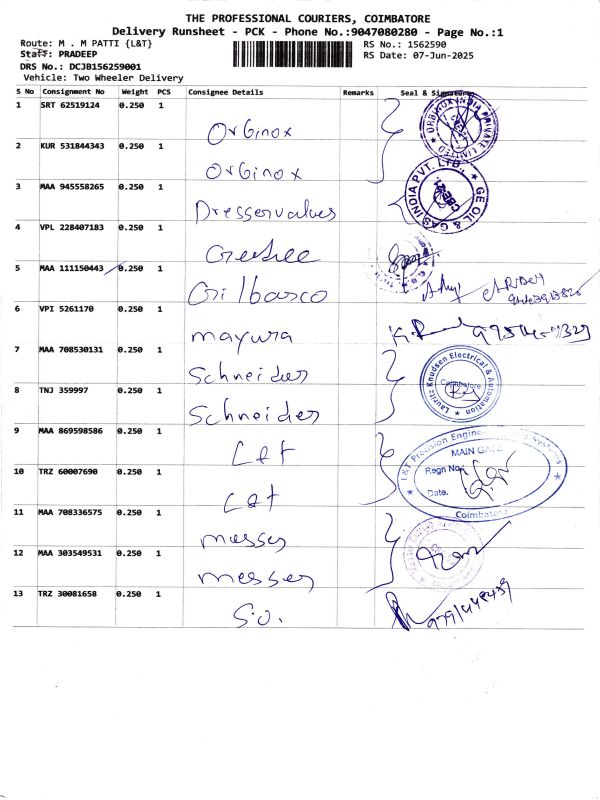 THE PROFESSIONAL COURIERS, COIMBATORE
Delivery Runsheet - PCK - Phone No.:9047080280 - Page No.:1
Route: M . M PATTI {L&T}
RS No.: 1562590
Staff: PRADEEP
RS Date: 07-Jun-2025
DRS No.: DCJB156259001
Vehicle: Two Wheeler Delivery
S No Consignment No Weight PCS Consignee Details Remarks Seal & Signature
1 SRT 62519124 0.250 1 Orbinox
ORBINOX INDIA PRIVATE LIMITED
2 KUR 531844343 0.250 1 Orbinox
3 MAA 945558265 0.250 1 Dresservalves
GE OIL & GAS INDIA PVT. LTD.
CBE-21
4 VPL 228407183 0.250 1
5 MAA 111150443 0.250 1
6 VPI 5261170 0.250 1 mayura
7 MAA 708530131 0.250 1 Schneider
Lauritz Knudsen Electrical & Automation
Coimbatore
8 TNJ 359997 0.250 1 Schneider
9 MAA 869598586 0.250 1 L&T
L&T Precision Engineering Systems
MAIN GATE
Regn No.
Date.
Coimbatore
10 TRZ 60007690 0.250 1 L&T
11 MAA 708336575 0.250 1 messer
12 MAA 303549531 0.250 1 messer
13 TRZ 30081658 0.250 1 S.O.